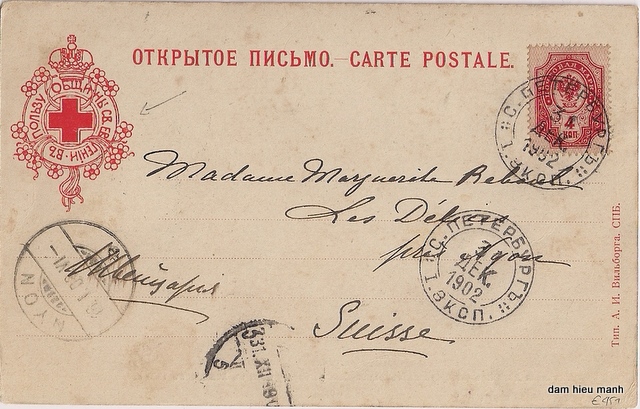 ОТКРЫТОЕ ПИСЬМО. — CARTE POSTALE.
ВЪ ПОЛЬЗУ ОБЩИНЫ СВ. ЕВГЕНІИ
4
КОП.
С. ПЕТЕРБУРГЪ
ДЕК.
1902
1 ЭКСП.
Madame Marguerite
Les Délices
près Nyon
Швейцарія
Suisse
С. ПЕТЕРБУРГЪ
ДЕК.
1902
1 ЭКСП.
NYON
31.XII.
Тип. А. И. Вильборга. СПБ.
dam hieu manh
€451